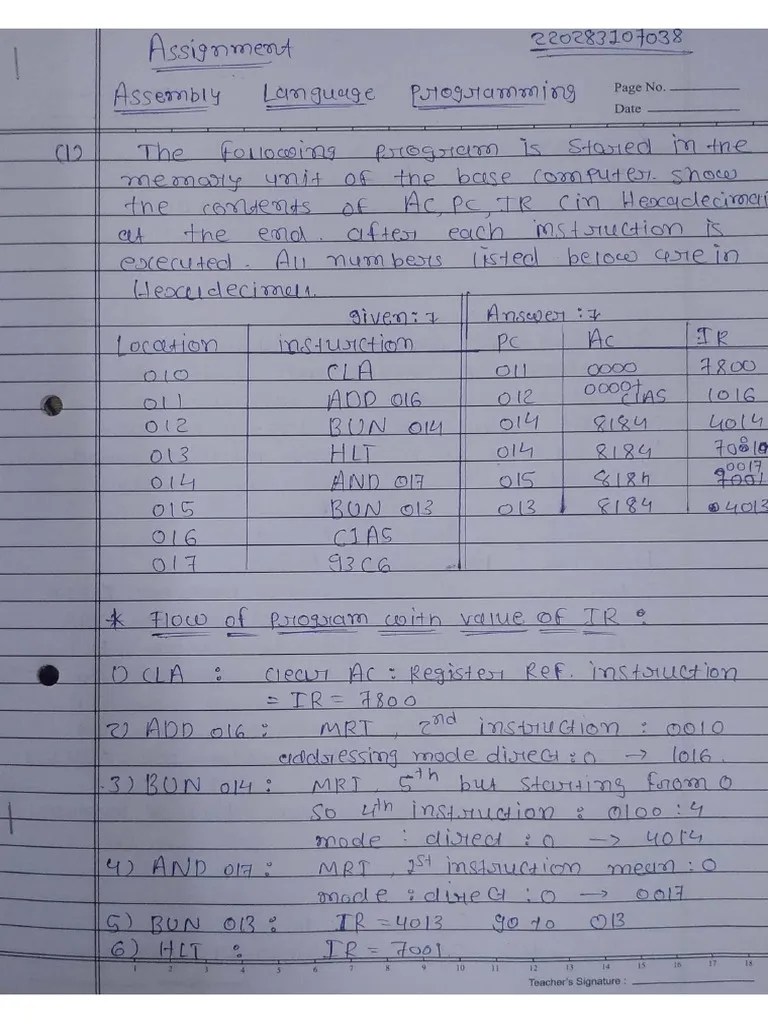 Assignment 220283107038
Assembly Language Programming Page No.
Date
(1) The following program is stored in the
memory unit of the base computer. show
the contents of AC, PC, IR (in Hexadecimal
at the end. after each instruction is
executed. All numbers listed below are in
Hexadecimal.
given:7 Answer:7
Location insturction PC AC IR
010 CLA 011 0000 7800
011 ADD 016 012 0000+ C1A5 1016
012 BUN 014 014 8184 4014
013 HLT 014 8184
014 AND 017 015 8184 0017 7001
015 BUN 013 013 8184 4013
016 C1A5
017 93C6
* Flow of program with value of IR :
1) CLA : Clear AC : Register Ref. instruction
= IR = 7800
2) ADD 016 : MRI, 2nd instruction : 0010
addressing mode direct : 0 → 1016.
3) BUN 014 : MRI, 5th but starting from 0
so 4th instruction : 0100 : 4
mode : direct : 0 → 4014
4) AND 017 : MRI, 1st instruction mean : 0
mode : direct : 0 → 0017
5) BUN 013 : IR = 4013 go to 013
6) HLT : IR = 7001.
1 2 3 4 5 6 7 8 9 10 11 12 13 14 15 16 17 18
Teacher's Signature :